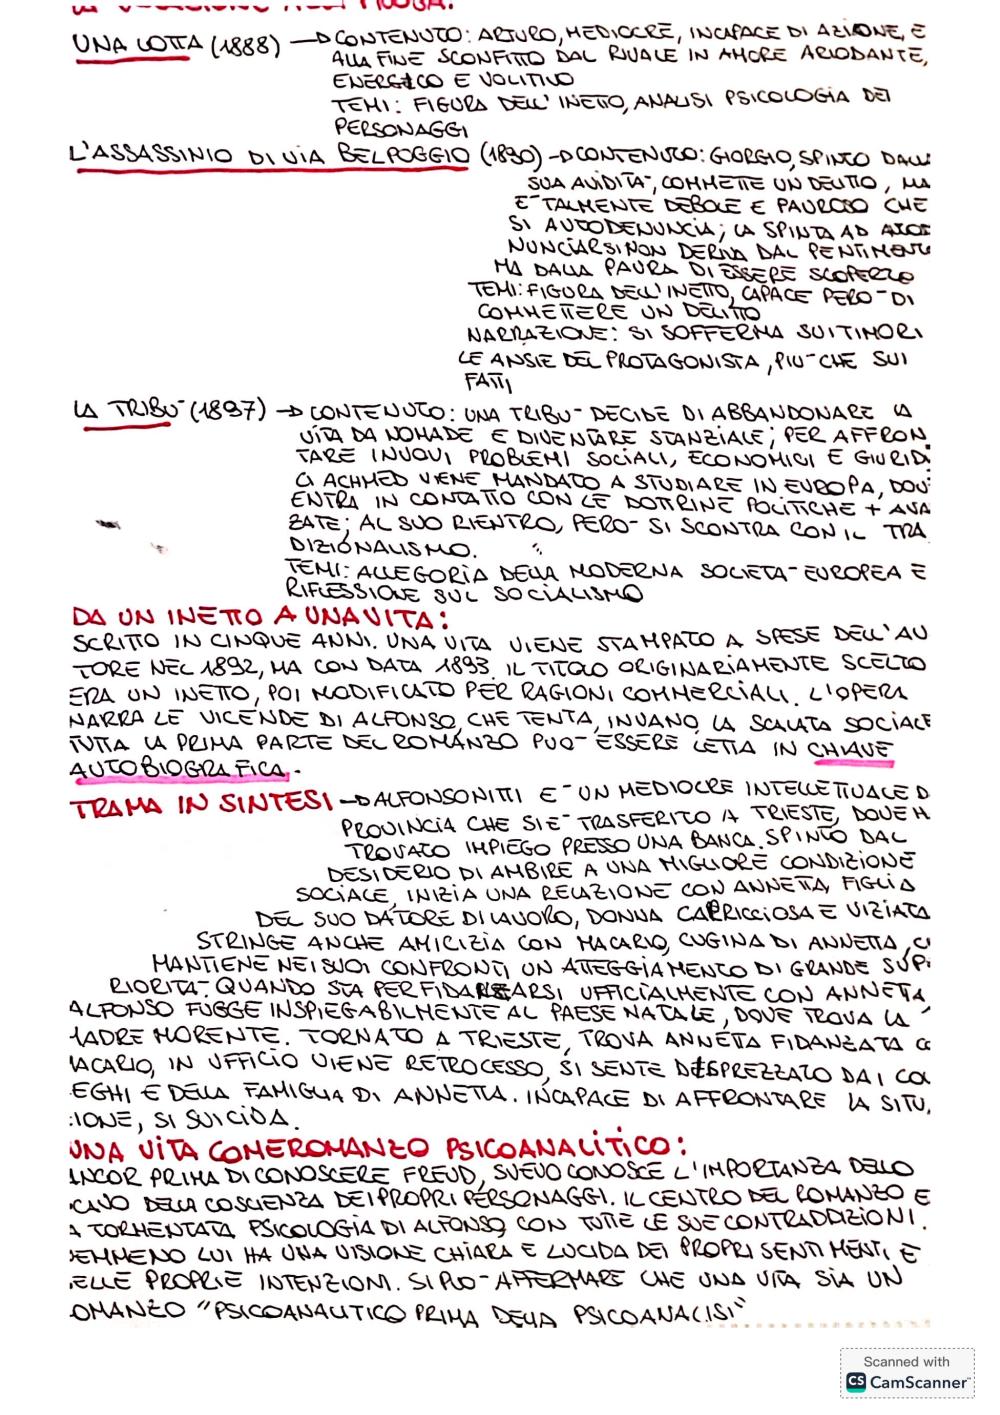 UNA LOTTA (1888) → CONTENUTO: ARTURO, MEDIOCRE, INCAPACE DI AZIONE, E
ALLA FINE SCONFITTO DAL RIVALE IN AMORE ARIODANTE,
ENERGICO E VOLITIVO
TEMI: FIGURA DELL'INETTO, ANALISI PSICOLOGIA DEI
PERSONAGGI
L'ASSASSINIO DI VIA BELPOGGIO (1890) → CONTENUTO: GIORGIO, SPINTO DALLA
SUA AVIDITA', COMMETTE UN DELITTO, MA
E' TALMENTE DEBOLE E PAUROSO CHE
SI AUTODENUNCIA; LA SPINTA AD
NUNCIARSI NON DERIVA DAL PENTIMENTO
MA DALLA PAURA DI ESSERE SCOPERTO
TEMI: FIGURA DELL'INETTO, CAPACE PERO' DI
COMMETTERE UN DELITTO
NARRAZIONE: SI SOFFERMA SUI TIMORI
LE ANSIE DEL PROTAGONISTA, PIU' CHE SUI
FATTI
LA TRIBU' (1897) → CONTENUTO: UNA TRIBU' DECIDE DI ABBANDONARE LA
VITA DA NOMADE E DIVENTARE STANZIALE; PER AFFRON
TARE I NUOVI PROBLEMI SOCIALI, ECONOMICI E GIURIDI
CI ACHMED VIENE MANDATO A STUDIARE IN EUROPA, DOV'
ENTRA IN CONTATTO CON LE DOTTRINE POLITICHE + AVA
ZATE; AL SUO RIENTRO, PERO' SI SCONTRA CON IL TRA
DIZIONALISMO.
TEMI: ALLEGORIA DELLA MODERNA SOCIETA' EUROPEA E
RIFLESSIONE SUL SOCIALISMO
DA UN INETTO A UNA VITA:
SCRITTO IN CINQUE ANNI. UNA VITA VIENE STAMPATO A SPESE DELL'AU
TORE NEL 1892, MA CON DATA 1893. IL TITOLO ORIGINARIAMENTE SCELTO
ERA UN INETTO, POI MODIFICATO PER RAGIONI COMMERCIALI. L'OPERA
NARRA LE VICENDE DI ALFONSO, CHE TENTA, INVANO, LA SCALATA SOCIALE
TUTTA LA PRIMA PARTE DEL ROMANZO PUO' ESSERE LETTA IN CHIAVE
AUTOBIOGRAFICA.
TRAMA IN SINTESI → ALFONSO NITTI E' UN MEDIOCRE INTELLETTUALE D
PROVINCIA CHE SI E' TRASFERITO A TRIESTE, DOVE H
TROVATO IMPIEGO PRESSO UNA BANCA. SPINTO DAL
DESIDERIO DI AMBIRE A UNA MIGLIORE CONDIZIONE
SOCIALE, INIZIA UNA RELAZIONE CON ANNETTA, FIGLIA
DEL SUO DATORE DI LAVORO, DONNA CAPRICCIOSA E VIZIATA
STRINGE ANCHE AMICIZIA CON MACARIO, CUGINA DI ANNETTA, C
MANTIENE NEI SUOI CONFRONTI UN ATTEGGIAMENTO DI GRANDE SUP
RIORITA'. QUANDO STA PER FIDANZARSI UFFICIALMENTE CON ANNETTA
ALFONSO FUGGE INSPIEGABILMENTE AL PAESE NATALE, DOVE TROVA LA
MADRE MORENTE. TORNATO A TRIESTE, TROVA ANNETTA FIDANZATA CO
MACARIO, IN UFFICIO VIENE RETROCESSO, SI SENTE DISPREZZATO DAI COL
EGHI E DELLA FAMIGLIA DI ANNETTA. INCAPACE DI AFFRONTARE LA SITU
IONE, SI SUICIDA.
UNA VITA COME ROMANZO PSICOANALITICO:
ANCOR PRIMA DI CONOSCERE FREUD, SVEVO CONOSCE L'IMPORTANZA DELLO
CAVO DELLA COSCIENZA DEI PROPRI PERSONAGGI. IL CENTRO DEL ROMANZO E
A TORMENTATA PSICOLOGIA DI ALFONSO, CON TUTTE LE SUE CONTRADDIZIONI.
NEMMENO LUI HA UNA VISIONE CHIARA E LUCIDA DEI PROPRI SENTIMENTI E
ELLE PROPRIE INTENZIONI. SI PUO' AFFERMARE CHE UNA VITA SIA UN
OMANZO "PSICOANALITICO PRIMA DELLA PSICOANALISI"
Scanned with
CS CamScanner